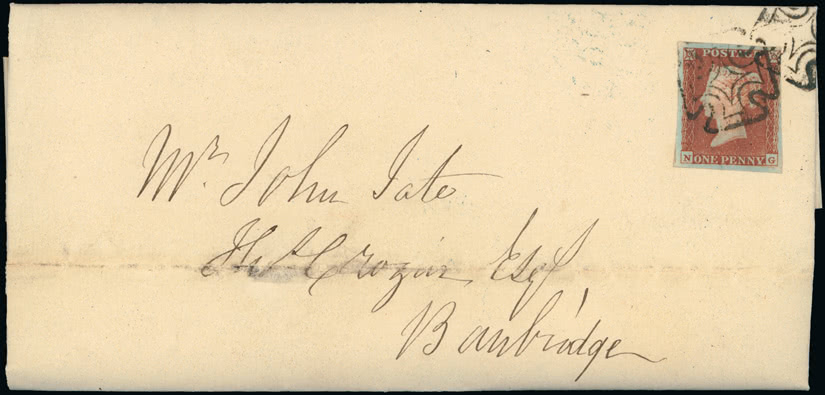 POSTAGE
N ONE PENNY G
Mr John Tate
Crozier Esqr
Banbridge